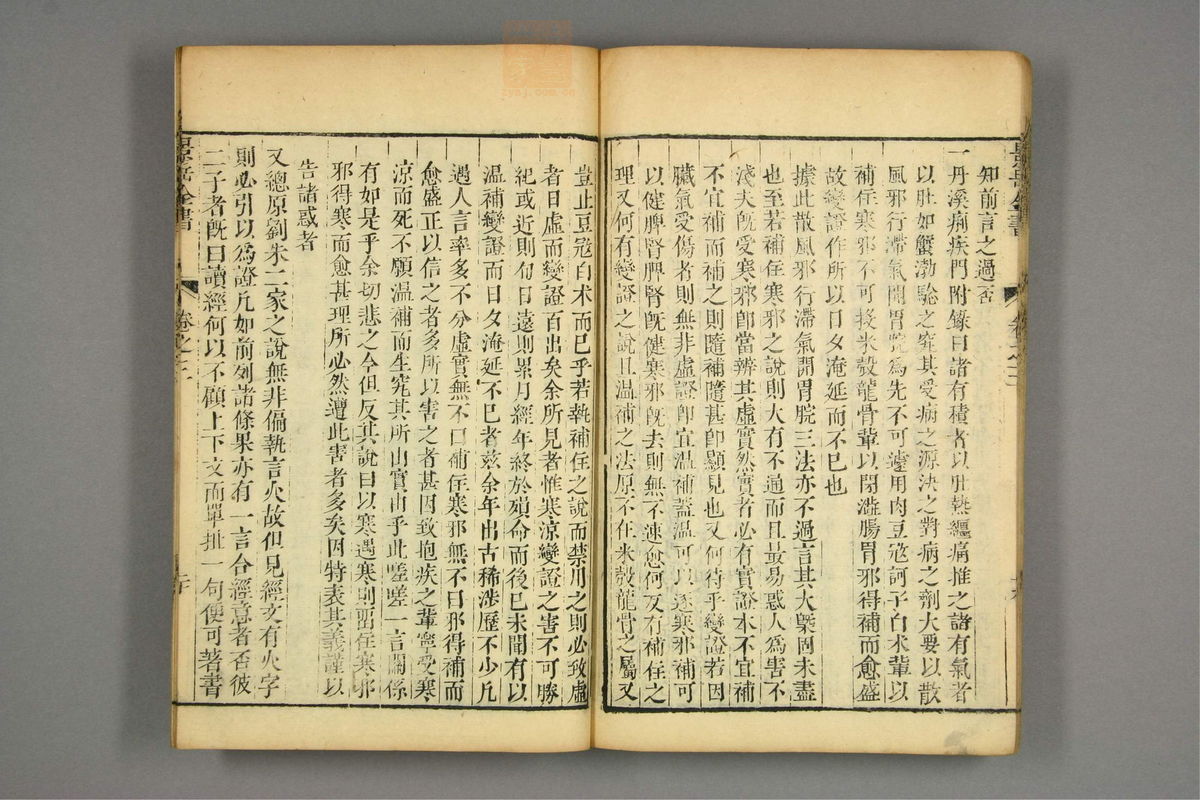 知前言之過否
一丹溪痢疾門附錄曰諸有積者以肚熱纏痛推之諸有氣者
以肚如蟹渤驗之究其受病之源決之對病之劑大要以散
風邪行滯氣開胃脘為先不可遽用肉豆蔻訶子白朮輩以
補住寒邪不可投米殼龍骨輩以閉澁腸胃邪得補而愈盛
故變證作所以日夕淹延而不已也
據此散風邪行滯氣開胃脘三法亦不過言其大槩固未盡
也至若補住寒邪之說則大有不通而且最易惑人為害不
淺夫既受寒邪卽當辨其虛實然實者必有實證本不宜補
不宜補而補之則隨補隨甚卽顯見也又何待乎變證若因
臟氣受傷者則無非虛證卽宜溫補蓋溫可以逐寒邪補可
以健脾腎脾腎既健寒邪既去則無不速愈何反有補住之
理又何有變證之說且溫補之法原不在米殼龍骨之屬又
豈止豆蔻白朮而已乎若執補住之說而禁用之則必致虛
者日虛而變證百出矣余所見者惟寒涼變證之害不可勝
紀或近則旬日遠則累月經年終於殞命而後已未聞有以
溫補變證而日夕淹延不已者茲余年出古稀涉歷不少凡
遇人言率多不分虛實無不曰補住寒邪無不曰邪得補而
愈盛正以信之者多所以害之者甚因致抱疾之輩寧受寒
涼而死不願溫補而生究其所由實由乎此嗟嗟一言關係
有如是乎余切悲之今但反其說曰以寒遇寒則留住寒邪
邪得寒而愈甚理所必然遭此害者多矣因特表其義謹以
告諸惑者
又總原劉朱二家之說無非偏執言火故但見經文有火字
則必引以為證凡如前列諸條果亦有一言合經意者否彼
二子者既曰讀經何以不顧上下文而單扯一句便可著書
景岳全書
卷之三